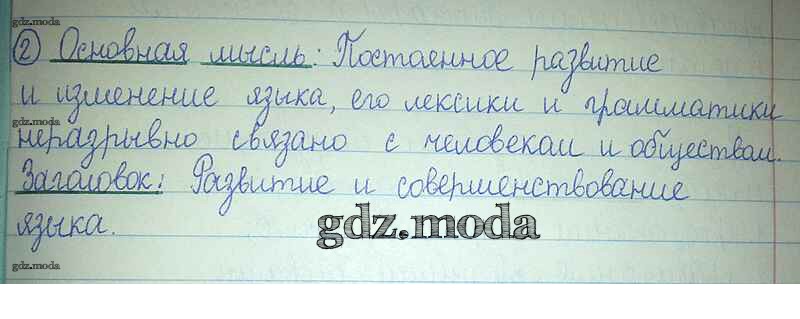 gdz.moda
② Основная мысль: Постоенное развитие
и изменение языка, его лексики и грамматики
gdz.moda
неразрывно связано с человеком и обществом.
Заголовок: Развитие и совершенствование
языка.
gdz.moda
gdz.moda